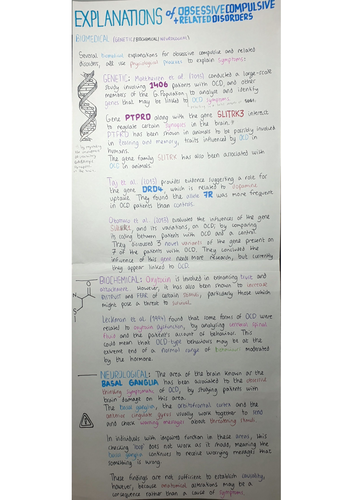 EXPLANATIONS of OBSESSIVE COMPULSIVE
+ RELATED DISORDERS
BIOMEDICAL (GENETIC/BIOCHEMICAL/NEUROLOGICAL)
Several biomedical explanations for obsessive compulsive and related
disorders, will use physiological processes to explain symptoms
GENETIC: Mattheisen et al (2015) conducted a large-scale
study involving 1406 patients with OCD, and other
members of the G. Population, to analyse and identify
genes that may be linked to OCD symptoms
Gene PTPRD along with the gene SLITRK3 interact
to regulate certain synapses in the brain.
PTPRD has been shown in animals to be possibly involved
in learning and memory, traits influenced by OCD in
humans.
The gene family SLITRK has also been associated with
OCD in animals.
Taj et al. (2013) provides evidence suggesting a role for
the gene DRD4, which is related to dopamine
uptake. They found the allele 7R was more frequent
in OCD patients than control.
evaluates the influences of the gene
and its variations, on OCD, by comparing
its coding between patients with OCD and a control.
They discovered 3 novel variants of the gene present on
7 of the patients with OCD. They concluded the
influence of this gene needs more research, but currently
they appear linked to OCD
BIOCHEMICAL: Oxytocin is involved in enhancing trust and
attachment. However, it has also been shown to increase
distrust and FEAR of certain stimuli, particularly those which
might pose a threat to survival
Leckman et al. (1994) found that some forms of OCD were
related to oxytocin dysfunction, by analysing cerebral spinal
fluid and the patient's account of behaviour. This
could mean that OCD-type behaviours may be at the
extreme end of a normal range of behaviours moderated
by the hormone.
NEUROLOGICAL: The area of the brain known as the
BASAL GANGLIA has been implicated by the
thinking symptomatic of OCD, by studying patients with
brain damage on this area.
The basal ganglia, the orbitofrontal cortex and the
anterior cingulate gyrus usually work together to send
and check warning messages about threatening stimuli
In individuals with impaired function in these areas, this
checking loop does not work as it should, meaning the
basal ganglia continues to receive worrying messages that
something is wrong.
These findings are not sufficient to establish causality,
however, because anatomical alterations may be a
consequence rather than a cause of symptoms